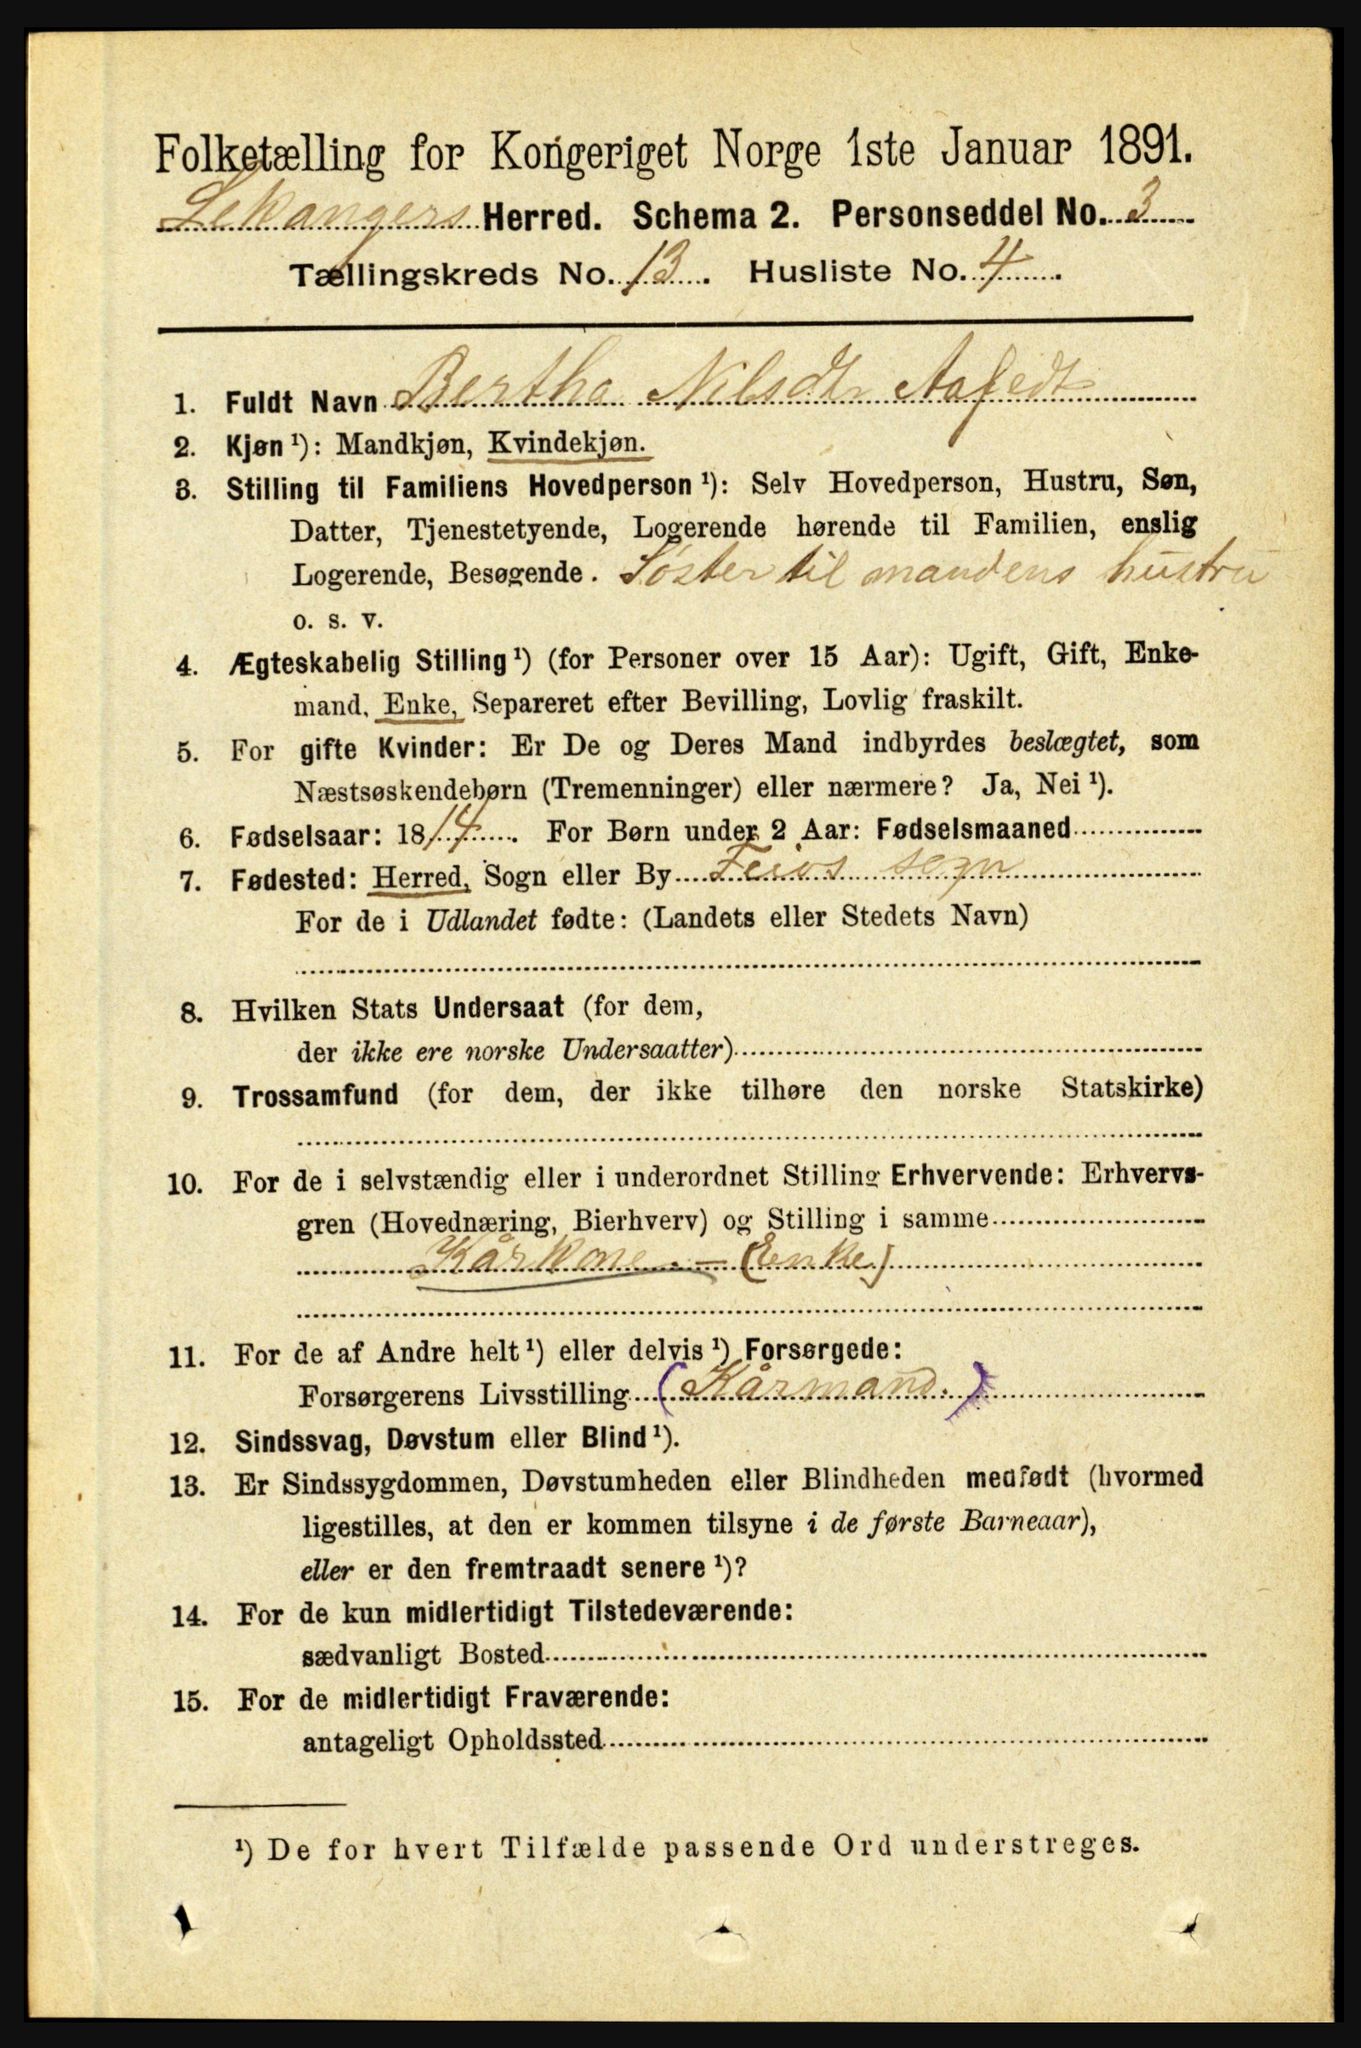 Folketælling for Kongeriget Norge 1ste Januar 1891.
Lekangers Herred. Schema 2. Personseddel No. 3
Tællingskreds No. 13. Husliste No. 4.
1. Fuldt Navn Bertha Nilsdtr Aafedt
2. Kjøn ¹): Mandkjøn, Kvindekjøn.
3. Stilling til Familiens Hovedperson ¹): Selv Hovedperson, Hustru, Søn,
Datter, Tjenestetyende, Logerende hørende til Familien, enslig
Logerende, Besøgende. Søster til mandens hustru
o. s. v.
4. Ægteskabelig Stilling ¹) (for Personer over 15 Aar): Ugift, Gift, Enke-
mand, Enke, Separeret efter Bevilling, Lovlig fraskilt.
5. For gifte Kvinder: Er De og Deres Mand indbyrdes beslægtet, som
Næstsøskendebørn (Tremenninger) eller nærmere? Ja, Nei ¹).
6. Fødselsaar: 1814. For Børn under 2 Aar: Fødselsmaaned
7. Fødested: Herred, Sogn eller By Feios sogn
For de i Udlandet fødte: (Landets eller Stedets Navn)
8. Hvilken Stats Undersaat (for dem,
der ikke ere norske Undersaatter)
9. Trossamfund (for dem, der ikke tilhøre den norske Statskirke)
10. For de i selvstændig eller i underordnet Stilling Erhvervende: Erhvervs-
gren (Hovednæring, Bierhverv) og Stilling i samme
Kårkone. — (Enke)
11. For de af Andre helt ¹) eller delvis ¹) Forsørgede:
Forsørgerens Livsstilling (Kårmand.)
12. Sindssvag, Døvstum eller Blind ¹).
13. Er Sindssygdommen, Døvstumheden eller Blindheden medfødt (hvormed
ligestilles, at den er kommen tilsyne i de første Barneaar),
eller er den fremtraadt senere ¹)?
14. For de kun midlertidigt Tilstedeværende:
sædvanligt Bosted
15. For de midlertidigt Fraværende:
antageligt Opholdssted
¹) De for hvert Tilfælde passende Ord understreges.